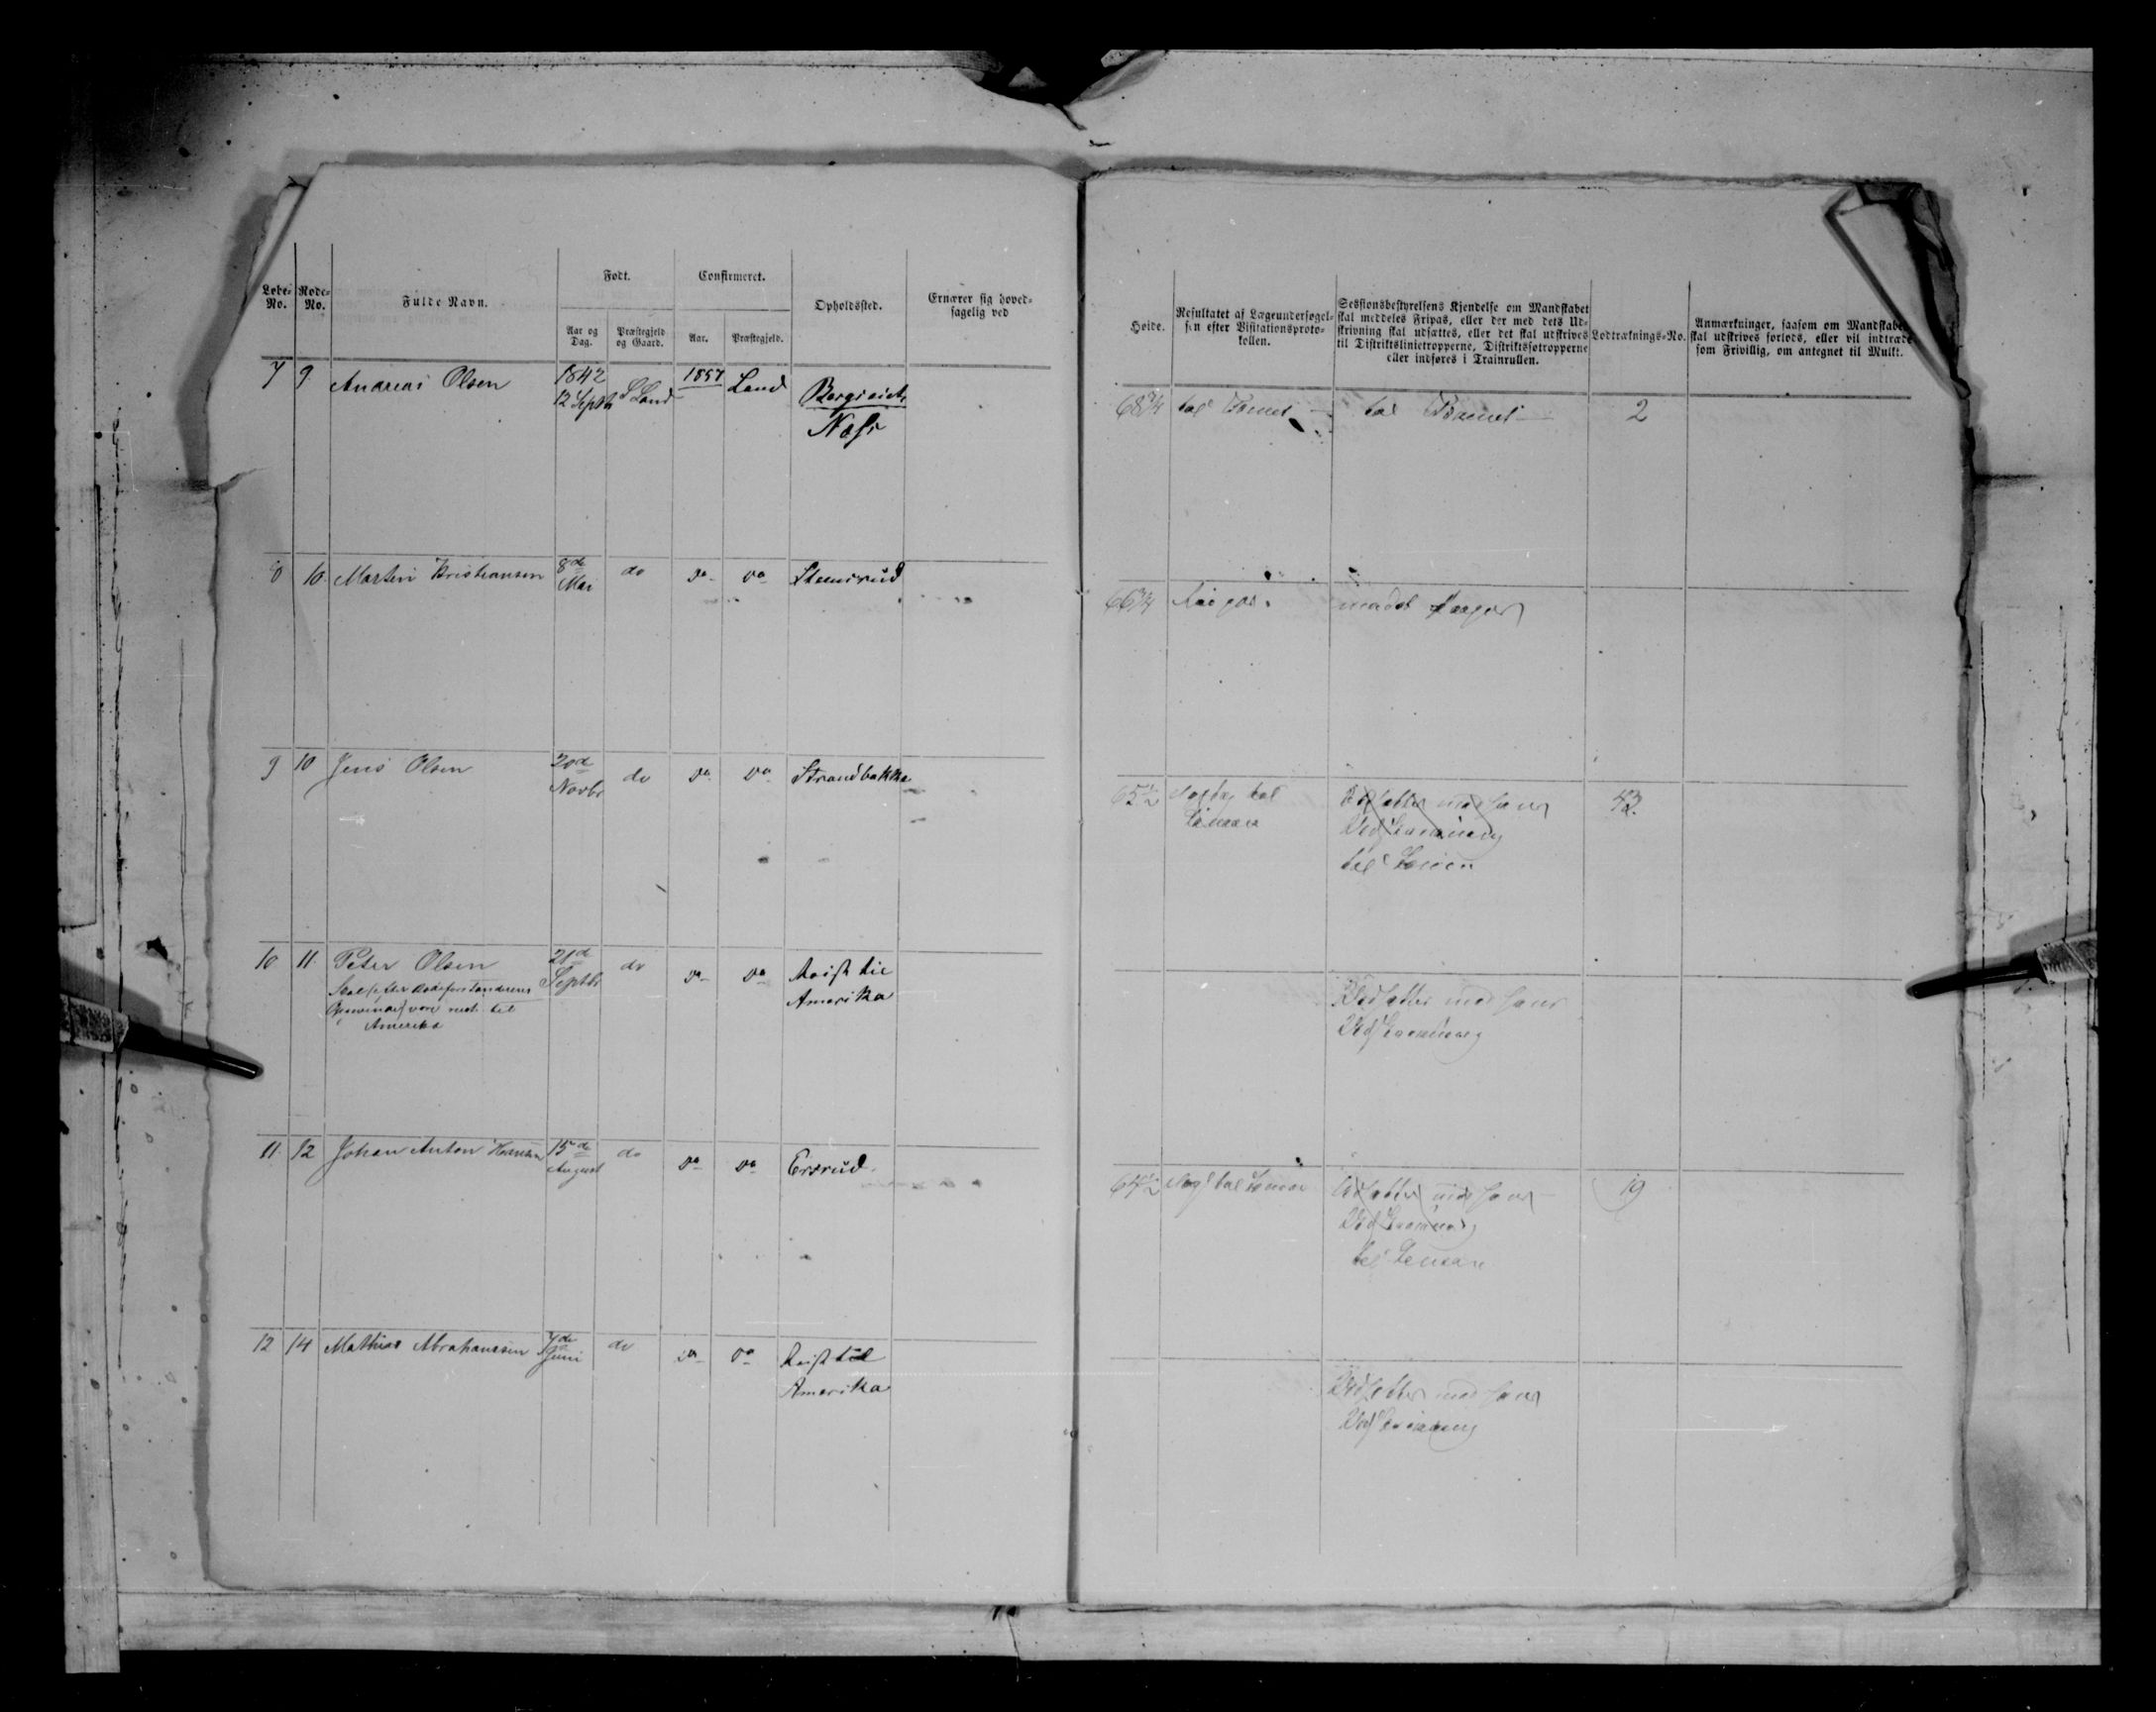 Løbe-No.
Rode-No.
Fulde Navn.
Født.
Aar og Dag.
Præstegjeld og Gaard.
Confirmeret.
Aar.
Præstegjeld.
Opholdssted.
Ernærer sig hovedsagelig ved
Høide.
Resultatet af Lægeundersøgelsen efter Visitationsprotokollen.
Sessionsbestyrelsens Kjendelse om Mandskabet
skal meddeles Fripas, eller der med dets Ud-
skrivning skal udsættes, eller det skal udskrives
til Distriktslinietropperne, Distriktsfotropperne
eller indføres i Trainrullen.
Lodtræknings-No.
Anmærkninger, saasom om Mandskabet
skal udskrives forlods, eller vil indtræde
som Frivillig, om antegnet til Mulkt.
7 9 Andreas Olsen 1842 S Land 1857 Land
12 Septbr
Næss
68 3/4 til Trænet til Trænet 2
8 10 Martin Kristiansen 8de Mai do do do Steensrud
66 3/4
9 10 Jens Olsen 20de Novbr do do do Strandbakka
65 1/2
43.
10 11 Peter Olsen 21de Septbr do do do Reist til
Amerika
Skal efter Rodeforstanderens
være reist til
Amerika
Udsættes med hans
Udskrivning
11 12 Johan Anton Hansen 15de August do do do
64 1/2
19
12 14 Mathias Abrahamsen 7de Juni do do do Reist til
Amerika
Udsættes med hans
Udskrivning